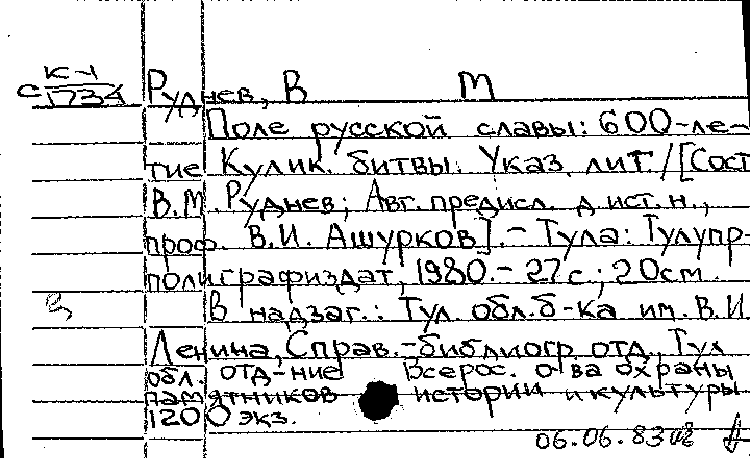 К-1
С 1734
Руднев, В М
Поле русской славы: 600-ле-
тие Кулик. битвы: Указ. лит./[Сост.
В.М. Руднев; Авт. предисл. д. ист. н.,
проф. В.И. Ашурков].- Тула: Тулупр-
полиграфиздат, 1980.- 27с.; 20см.
В надзаг.: Тул. обл. б-ка им. В.И.
Ленина, Справ.-библиогр. отд., Тул.
обл. отд-ние Всерос. о-ва охраны
памятников истории и культуры.
1200 экз.
06.06.83